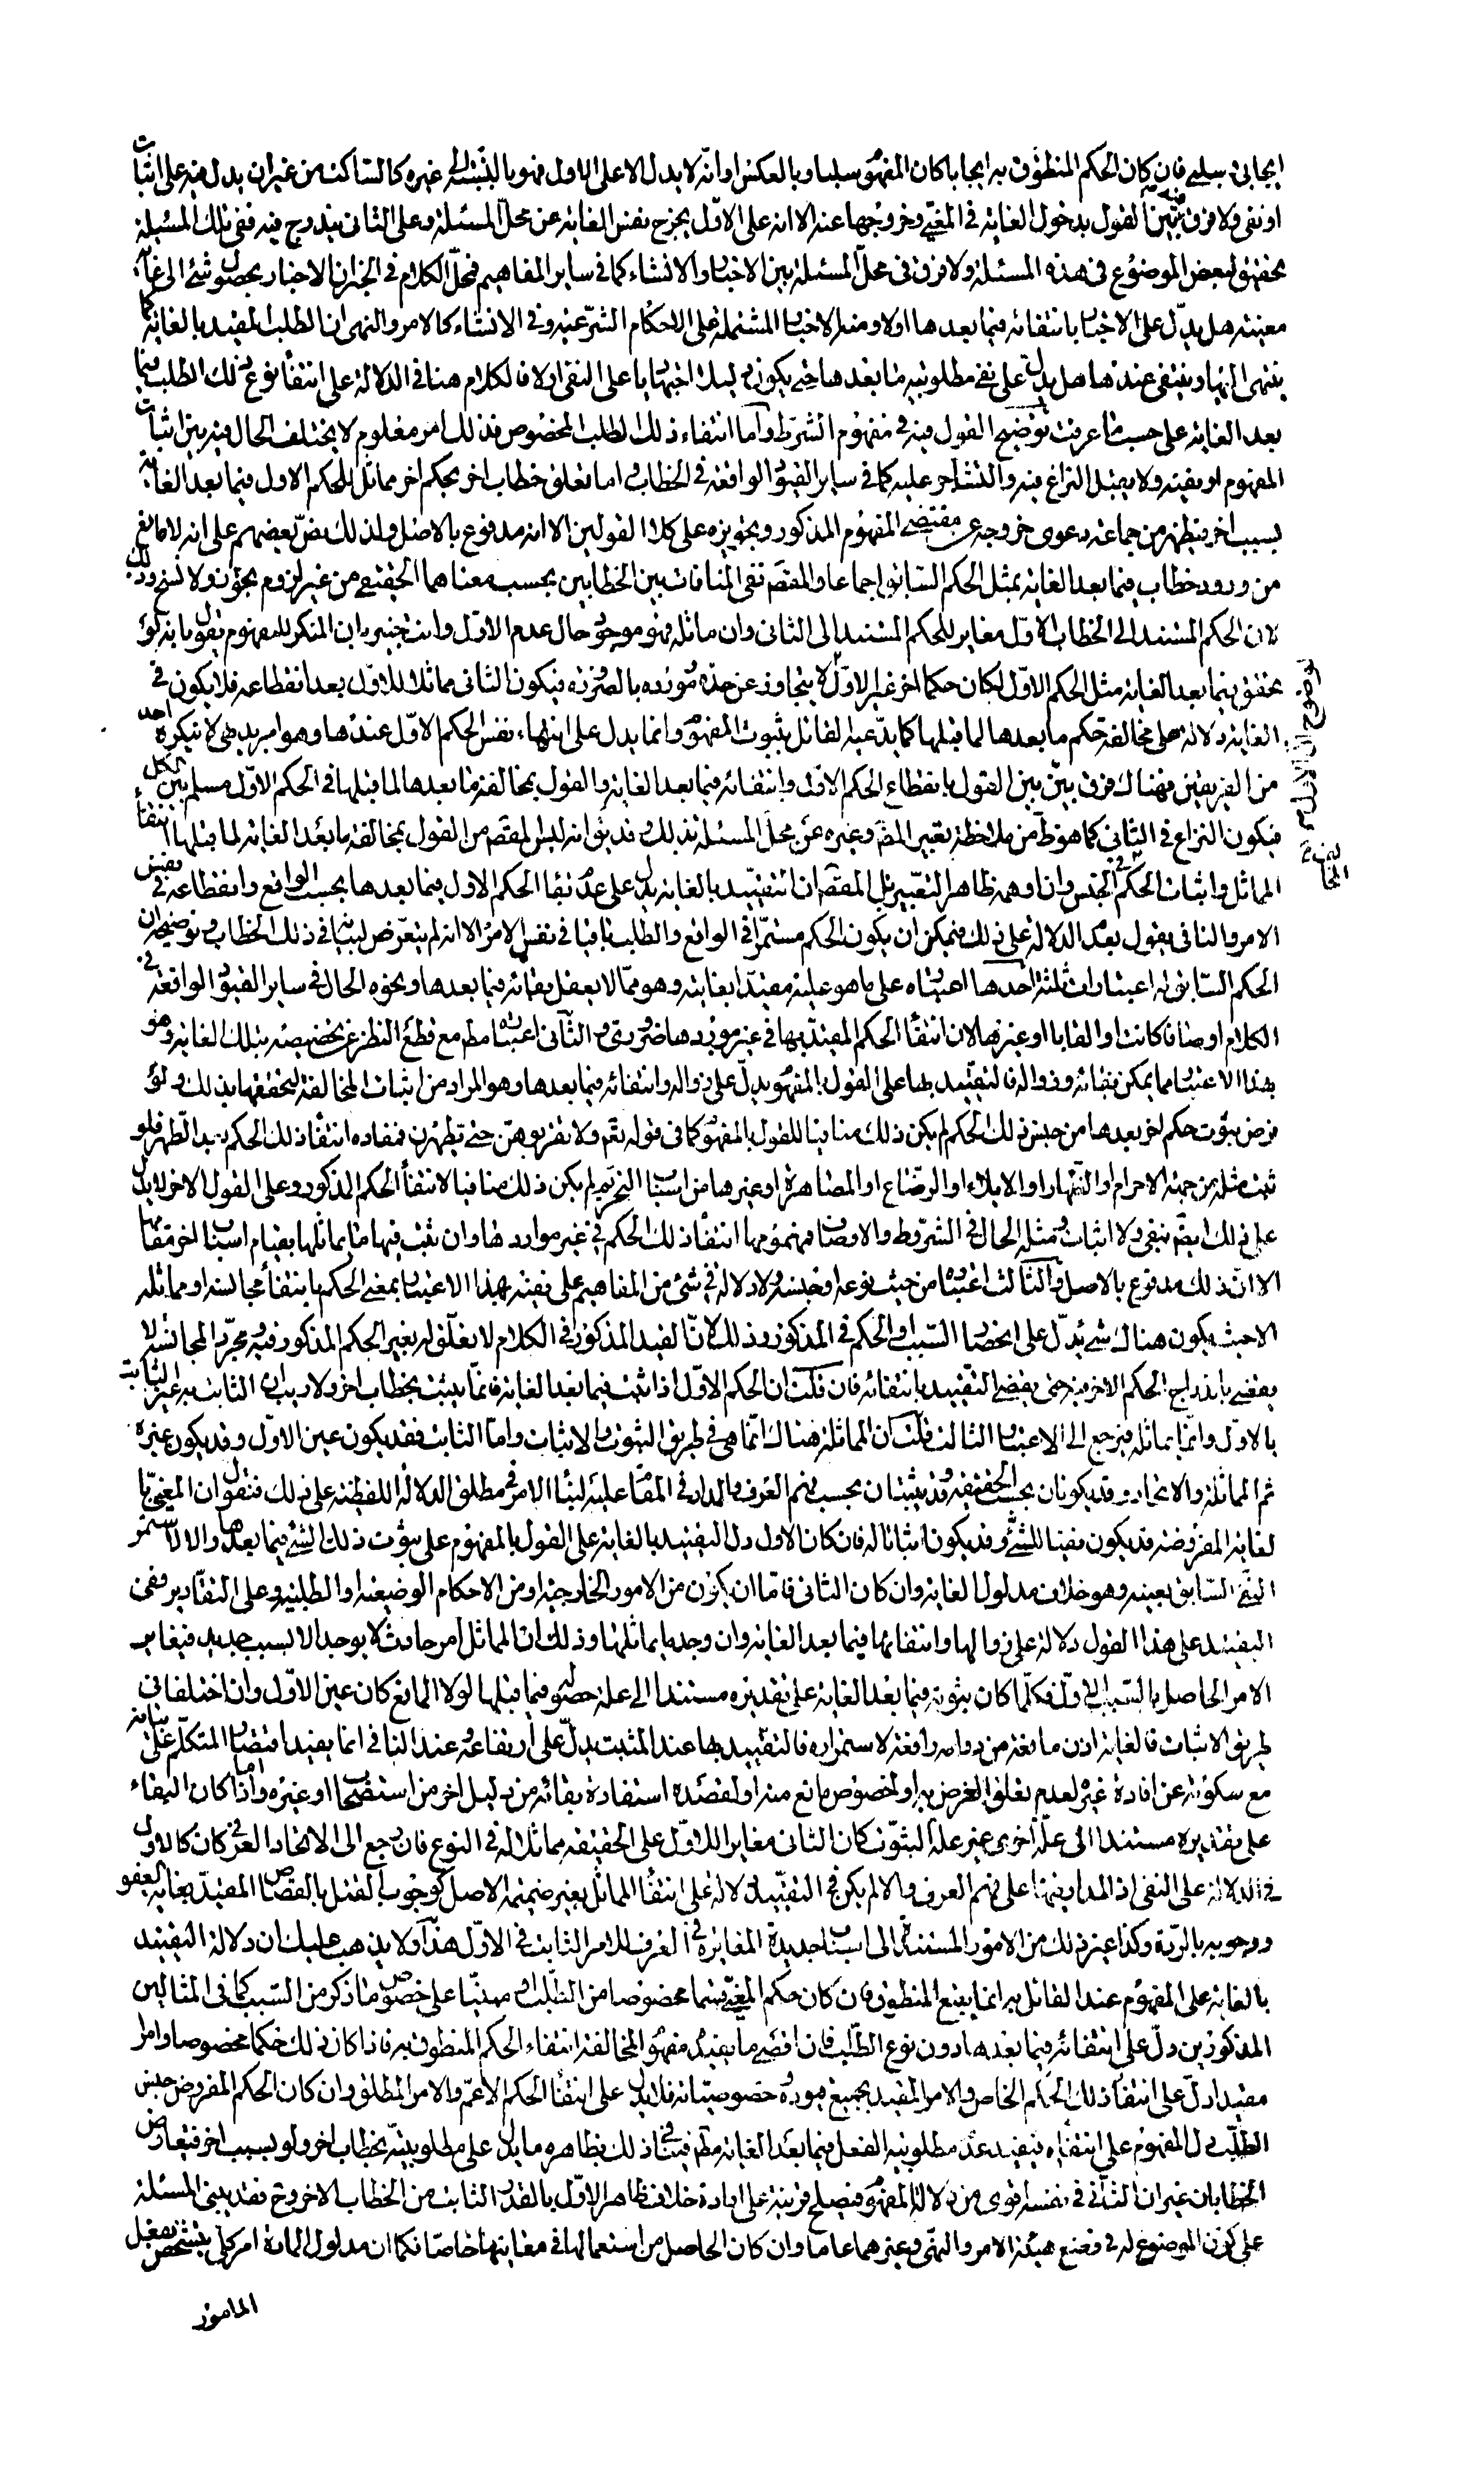 ايجابىّ و سلبى فان كان الحكم المنطوق به ايجابا كان المفهوم سلبا و بالعكس او انّه لا يدل الا على الاول فهو بالنسبة الى غيره كالساكت من غير ان يدل فيه على اثبات
او نفى ولا فرق بين القول بدخول الغاية فى المغيّى و خروجها عنه الا انه على الاوّل يخرج نفس الغاية عن محلّ المسئلة و على الثانى يندرج فيه ففى تلك المسئلة
تحقيق لبعض الموضوع فى هذه المسئلة ولا فرق فى محلّ المسئلة بين الاخبار والانشاء كما فى ساير المفاهيم فمحلّ الكلام فى الخبر ان الاخبار بحصول شئ الى غاية
معينة هل يدلّ على الاخبار بانتفائه فيما بعدها او لا و منه الاخبار المشتملة على الاحكام الشرعية و فى الانشاء كالامر والنهى ان الطلب المقيد بالغاية كما
ينتهى اليها و ينتفى عندها هل يدل على نفى مطلوبية ما بعدها حتى يكون دليلا اجتهاديا على النفى او لا فالكلام هنا فى الدلالة على انتفاء نوع ذلك الطلب فيما
بعد الغاية على حسب ما عرفت توضيح القول فيه فى مفهوم الشرط و اما انتفاء ذلك الطلب المخصوص فذلك امر معلوم لا يختلف الحال فيه بين اثبات
المفهوم او نفيه ولا يقبل النزاع فيه والتشاجر عليه كما فى ساير القيود الواقعة فى الخطاب و اما تعلق خطاب اخر بحكم اخر مماثل للحكم الاول فيما بعد الغاية
بسبب اخر فيظهر من جماعة دعوى خروجه عن مقتضى المفهوم المذكور و تجويزه على كلا القولين الا انه مدفوع بالاصل ولذلك نصّ بعضهم على انه لا مانع
من ورود خطاب فيما بعد الغاية بمثل الحكم السابق اجماعا والمقصّ نفى المنافات بين الخطابين بحسب معناهما الحقيقى من غير لزوم تجوّز ولا نسخ و ذلك
لان الحكم المستند الى الخطاب الاوّل مغاير للحكم المستند الى الثانى وان ماثله فهو موجود حال عدم الاوّل وانت خبير بان المنكر للمفهوم يقول بانه لو
تحقق فيما بعد الغاية مثل الحكم الاوّل لكان حكما اخر غير الاوّل لا يتجاوز عن حدّه و مورده بالضرورة فيكون الثانى مماثلا للاوّل بعد انقطاعه فلا يكون فى
الغاية دلالة على مخالفة حكم ما بعدها لما قبلها كما يدّعيه القائل بثبوت المفهوم و انما يدل على انتهاء نفس الحكم الاوّل عندها و هو امر بديهى لا ينكره احد
من الفريقين فهناك فرق بيّن بين القول بانقطاع الحكم الاوّل و انتفائه فيما بعد الغاية والقول بمخالفة ما بعدها لما قبلها فى الحكم الاوّل مسلم بين الكل
فيكون النزاع فى الثانى كما هو ظ من ملاحظة تعبير المصّ و غيره عن محلّ المسئلة بذلك و قد يق انه ليس المقصّ من القول بمخالفة ما بعد الغاية لما قبلها انتفاء
المماثل و اثبات الحكم فى الجنس وان اوهمه ظاهر التعبير بل المقصّ ان التقييد بالغاية يدل على انتفاء الحكم الاول فيما بعدها بحسب الواقع و انقطاعه فى نفس
الامر والنافى يقول بعدم الدلالة على ذلك فيمكن ان يكون الحكم مستمرّا فى الواقع والطلب باقيا فى نفس الامر الا انه لم يتعرّض لبيانه فى ذلك الخطاب و توضيحه ان
الحكم السابق له اعتبارات ثلثة احدها اعتباره على ما هو عليه مقيّدا بغايته و هو ممّا لا يعقل بقائه فيما بعدها و نحوه الحال فى ساير القيود الواقعة فى
الكلام اوصافا كانت او القابا او غيرها لان انتفاء الحكم المقيّد بها فى غير موردها ضرورى و الثانى اعتباره مط مع قطع النظر عن تخصيصه بتلك الغاية و هو
بهذا الاعتبار مما يمكن بقائه و زواله فالتقييد بها على القول بالمفهوم يدلّ على زواله و انتفائه فيما بعدها و هو المراد من اثبات المخالفة لتحققها بذلك و لو
فرض ثبوت حكم اخر بعدها من جنس ذلك الحكم لم يكن ذلك منافيا للقول بالمفهوم كما فى قوله تعم ولا تقربوهنّ حتى يطهرن فمفاده انتفاء ذلك الحكم بعد الطهر فلو
ثبت مثله من جهة الاحرام او الظهار او الايلاء او الرضاع او المصاهرة او غيرها من اسباب التحريم لم يكن ذلك منافيا لانتفاء الحكم المذكور و على القول الاخر لا يدل
على ذلك بنفى ولا اثبات و مثله الحال فى الشروط والاوصاف فمفهومها انتفاء ذلك الحكم فى غير مواردها وان ثبت فيها ما يماثلها بقيام اسباب اخر مقامها
الا انّ ذلك مدفوع بالاصل و الثالث اعتباره من حيث نوعه او جنسه ولا دلالة فى شئ من المفاهيم على نفيه بهذا الاعتبار بمعنى الحكم بانتفاء مجانسه او مماثله
الا حيث يكون هناك شئ يدلّ على انحصار السبب او الحكم فى المذكور و ذلك لانّ القيد المذكور فى الكلام لا تعلّق له بغير الحكم المذكور فيه و مجرّد المجانسة لا
يقضى باندراج الحكم الاخر فيه حتى يقضى التقييد بانتفائه فان قلت ان الحكم الاوّل اذا ثبت فيما بعد الغاية فانّما يثبت بخطاب اخر ولا ريب ان الثابت به غير الثابت
بالاوّل و انّما يماثله فيرجع الى الاعتبار الثالث قلت ان المماثلة هناك انّما هى فى طريق الثبوت و الاثبات و امّا الثابت فقد يكون عين الاوّل و قد يكون غيره
ثم المماثلة والاتحاد قد يكونان بحسب الحقيقة و قد يثبتان بحسب فهم العرف والمدار فى المقام عليه لبناء الامر فى مطلق الدلالة اللفظية على ذلك فنقول ان المغيّى
لغاية المفروضة قد يكون نفيا للشئ و قد يكون اثباتا له فان كان الاول دل التقييد بالغاية على القول بالمفهوم على ثبوت ذلك الشئ فيما بعدها والا لاستمر
النفى السابق بعينه و هو خلاف مدلول الغاية وان كان الثانى فامّا ان يكون من الامور الخارجية او من الاحكام الوضعية او الطلبية و على التقادير ففى
التقييد على هذا القول دلالة على زوالها و انتفائها فيما بعد الغاية وان وجد ما يماثلها و ذلك ان المماثل امر حادث لا يوجد الا بسبب جديد فيغاير
الامر الحاصل بالسبب الاوّل فكلّما كان ثبوته فيما بعد الغاية على تقديره مستندا الى علة حصوله فيما قبلها لولا المانع كان عين الاوّل وان اختلفا فى
طريق الاثبات فالغاية اذن مانعة من دوامه رافعة لاستمراره فالتقييد بها عند المثبت يدلّ على ارتفاعه و عند النافى انما يفيد اقتصار المتكلّم على بيانه
مع سكوته عن افادة غيره لعدم تعلق الغرض به او لخصوص مانع منه او لقصده استفادة بقائه من دليل اخر من استصحاب او غيره و اما اذا كان البقاء
على تقديره مستندا الى علّة اخرى غير علة الثبوت كان الثانى مغايرا للاوّل على الحقيقة مماثلا له فى النوع فان رجع الى الاتحاد العرفى كان كالاول
فى الدلالة على النفى اذ المدار فيها على فهم العرف والا لم يكن فى التقييد دلالة على انتفاء المماثل بغير ضميمة الاصل كوجوب القتل بالقصاص المقيّد بغاية العفو
و وجوبه بالردّة و كذا غير ذلك من الامور المستندة الى اسباب جديدة المغايرة فى العرف للامر الثابت فى الاوّل هذا ولا يذهب عليك ان دلالة التقييد
بالغاية على المفهوم عند القائل به انما يتبع المنطوق فان كان حكم المغيّى قسما مخصوصا من الطلب او مبنيّا على خصوص ما ذكر من السبب كما فى المثالين
المذكورين دلّ على انتفائه فيما بعدها دون نوع الطلب فان اقصى ما يفيده مفهوم المخالفة انتفاء الحكم المنطوق به فاذا كان ذلك حكما مخصوصا و امرا
مقيدا دلّ على انتفاء ذلك الحكم الخاص والامر المقيد بجميع قيوده و خصوصياته فلا يدل على انتفاء الحكم الاعمّ والامر المطلق وان كان الحكم المفروض جنس
الطلب دل المفهوم على انتفائه فيفيد عدم مطلوبية الفعل فيما بعد الغاية مط فينافى ذلك بظاهره ما يدل على مطلوبيته بخطاب اخر ولو بسبب اخر فيتعارض
الخطابان غير ان الثانى فى نفسه اقوى من دلالة المفهوم فيصلح قرينة على ارادة خلاف ظاهر الاوّل بالقدر الثابت من الخطاب الاخر و ح فقد يبنى المسئلة
على كون الموضوع له فى وضع هيئة الامر والنهى و غيرهما عاما وان كان الحاصل من استعمالها فى معانيها خاصّا فكما ان مدلول المادة امر كلّى يتشخّص بفعل
المامور